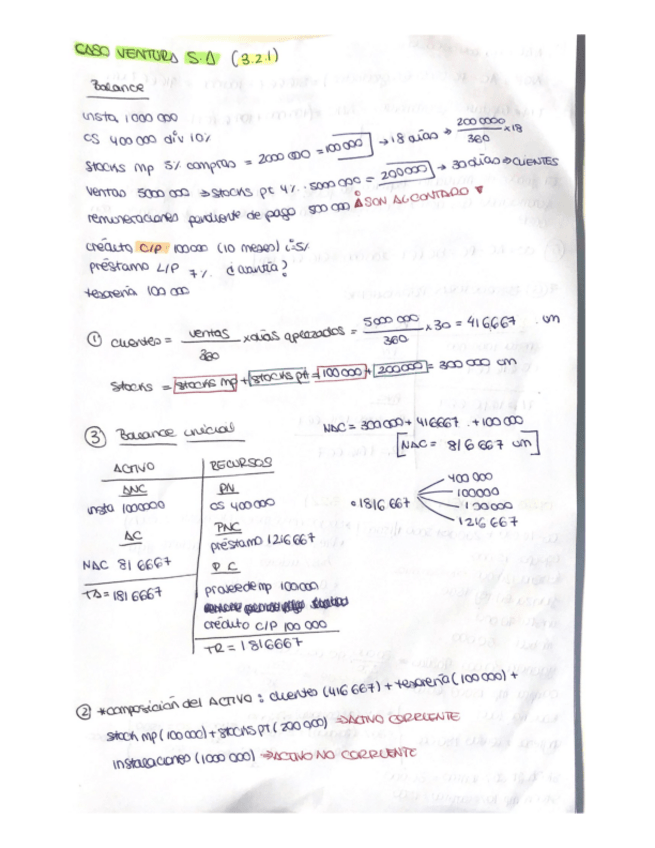 CASO VENTURA S.A (3.2.1)
Balance
insta 1000 000
CS 400 000 div 10%
Stocks mp 5% compras = 2000 000 = 100 000 → 18 días → 2000000/360 x18
Ventas 5000 000 → stocks pt 4% · 5000 000 = 200 000 → 30 días → CLIENTES
remuneraciones pendiente de pago 500 000 SON AL CONTADO
crédito C/P 100 000 (10 meses) i=5%
préstamo L/P 7% ¿cuantía?
tesorería 100 000
① clientes = ventas/360 x días aplazados = 5000 000/360 x 30 = 416667 um
Stocks = stocks mp + stocks pt = 100 000 + 200 000 = 300 000 um
③ Balance inicial
NAC = 300 000 + 416667 + 100 000
[NAC = 816 667 um]
ACTIVO
RECURSOS
ANC
PN
insta 1000000
CS 400 000
AC
PNC
préstamo 1216 667
NAC 816667
PC
TA = 1816667
proveed mp 100000
crédito C/P 100 000
TR = 1816667
1816 667
400 000
100000
100000
1216 667
② *composición del ACTIVO: clientes (416 667) + tesorería (100 000) +
stock mp (100 000) + stocks PT (200 000) → ACTIVO CORRIENTE
instalaciones (1000 000) → ACTIVO NO CORRIENTE